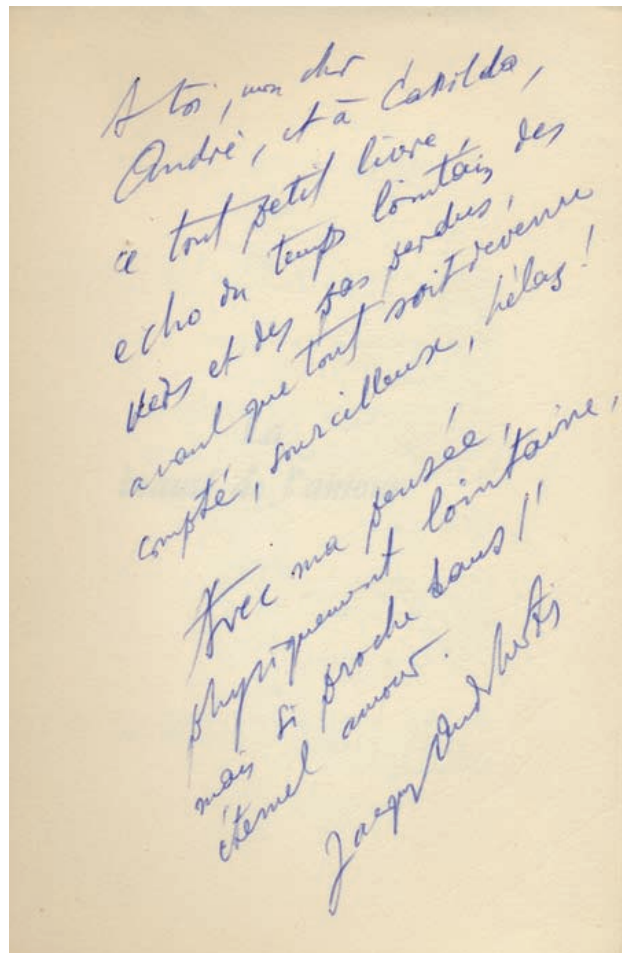 A toi, mon cher
André, et à Casilda,
ce tout petit livre,
echo du temps lointain des
vers et des pas perdus,
avant que tout soit devenu
compté, sourcilleux, hélas !
Avec ma pensée,
physiquement lointaine,
mais si proche dans l'
éternel amour.
Jacques Audiberti